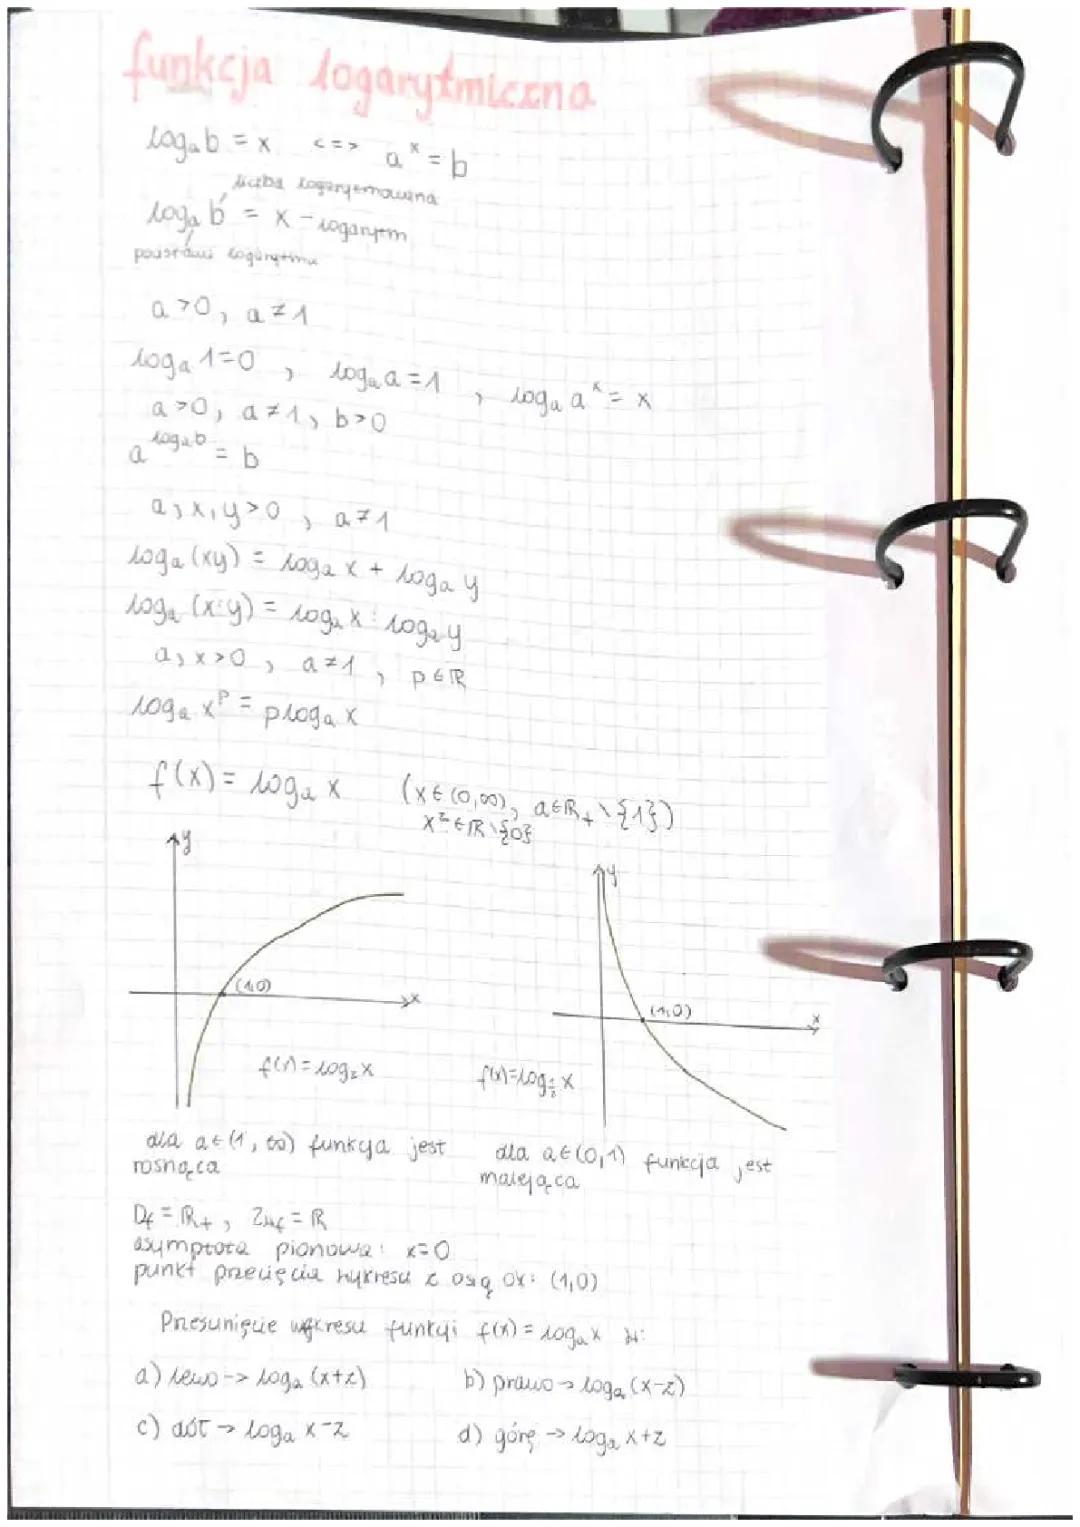 funkcja logarytmiczna
logₐb = x <=> aˣ = b
liczba logarytmowana
logₐb = x - logarytm
podstawa logarytmu
a>0, a≠1
logₐ1=0 , logₐa=1 , logₐaˣ = x
a>0, a≠1, b>0
a^(logₐb) = b
a,x,y>0 , a≠1
logₐ(xy) = logₐx + logₐy
logₐ(x:y) = logₐx : logₐy
a,x>0 , a≠1 , p∈ℝ
logₐxᵖ = plogₐx
f(x) = logₐx (x∈(0,∞), a∈ℝ₊\{1})
x²∈ℝ\{0}
y
y
(1,0)
x
(1,0)
x
f(x)=log₂x
f(x)=log_(1/2) x
dla a∈(1,∞) funkcja jest
rosnąca
dla a∈(0,1) funkcja jest
malejąca
Df = ℝ₊, Zwf = ℝ
asymptota pionowa: x=0
punkt przecięcia wykresu z osią OX: (1,0)
Przesunięcie wykresu funkcji f(x) = logₐx w:
a) lewo -> logₐ(x+z)
b) prawo -> logₐ(x-z)
c) dół -> logₐx-z
d) górę -> logₐx+z